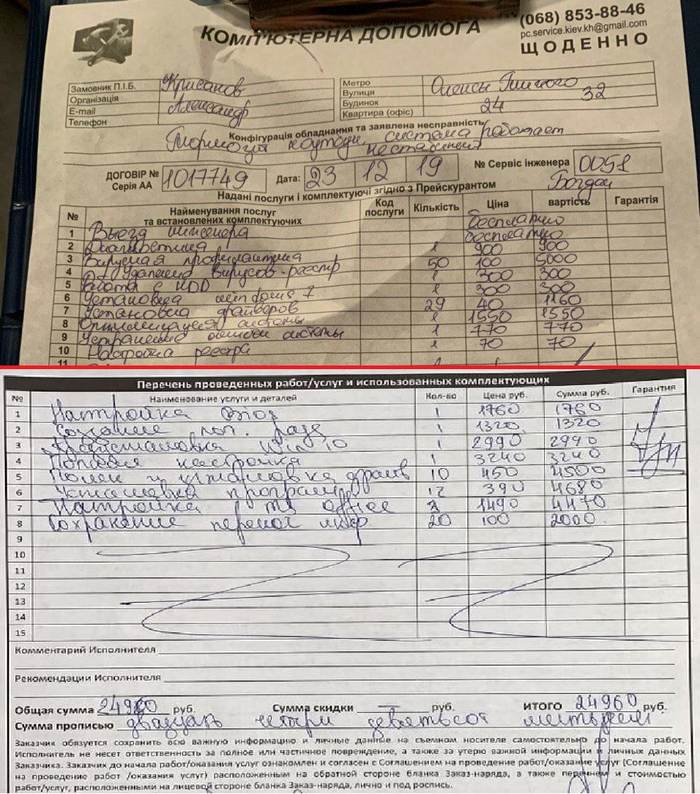 КОМП'ЮТЕРНА ДОПОМОГА
(068) 853-88-46
pc.service.kiev.kh@gmail.com
ЩОДЕННО
Замовник П.І.Б.
Організація
E-mail
Телефон
Александр
Метро
Вулиця
Будинок 24
Квартира (офіс) 32
Конфігурація обладнання та заявлена несправність:
система работает
ДОГОВІР № Серія АА 1017749 Дата: 23 12 19 № Сервіс інженера 0091
Богдан
Надані послуги і комплектуючі згідно з Прейскурантом
№ Найменування послуг та встановлених комплектуючих Код послуги Кількість Ціна вартість Гарантія
1 Выезд инженера бесплатно
2 Диагностика бесплатно
3 Вирусная профилактика 1 900 900
4 Удаление вирусов-реестр 50 100 5000
5 Работа с HDD 1 300 300
6 Установка windows 7 1 300 300
7 Установка драйверов 29 40 1160
8 Оптимизация системы 1 1550 1550
9 Устранение ошибок системы 1 770 770
10 реестра 1 70 70
11
Перечень проведенных работ/услуг и использованных комплектующих
№ Наименование услуги и деталей Кол-во Цена руб. Сумма руб. Гарантия
1 Настройка 1 1760 1760
2 Создание 1 1320 1320
3 Win 10 1 2990 2990
4 настройка 1 3240 3240
5 Поиск и установка драйв 10 450 4500
6 Установка программ 12 390 4680
7 Настройка ms office 3 1490 4470
8 Сохранение 20 100 2000
9
10
11
12
13
14
15
Комментарий Исполнителя
Рекомендации Исполнителя
Общая сумма 24960 руб. Сумма скидки — руб. ИТОГО 24960 руб.
Сумма прописью двадцать четыре девятьсот шестьдесят
Заказчик обязуется сохранить всю важную информацию и личные данные на съемном носителе самостоятельно до начала работ.
Исполнитель не несет ответственность за полное или частичное повреждение, а также за утерю важной информации и личных данных
Заказчика. Заказчик до начала работ/оказания услуг ознакомлен и согласен с Соглашением на проведение работ/оказание услуг (Соглашение
на проведение работ /оказания услуг) расположенным на обратной стороне бланка Заказ-наряда, а также перечнем и стоимостью
работ/услуг, расположенными на лицевой стороне бланка Заказ-наряда, лично и под роспись.